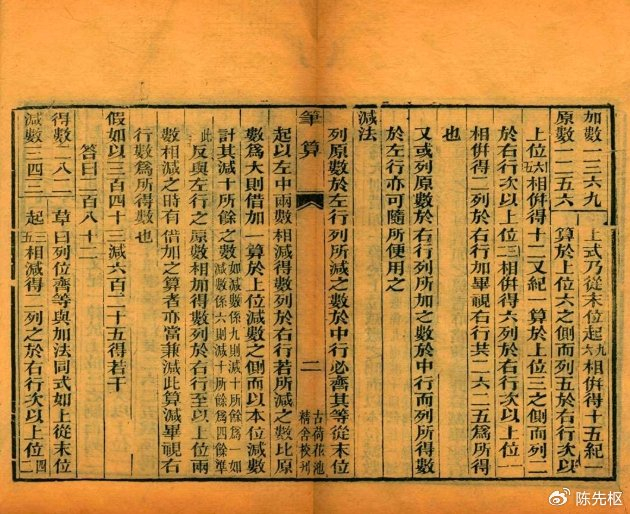 加數一三六九 上式乃從末位起九六相併得十五紀一
原數一二五六 算於上位六之側而列五於右行次以
上位六五相併得十二又紀一算於上位三之側而列二
於右行次以上位三二相併得六列於右行次以上位一一
相併得二列於右行加畢視右行共二六二五爲所得
也
又或列原數於右行列所加之數於中行而列所得數
於左行亦可隨所便用之
減法
列原數於左行列所減之數於中行必齊其等從末位
筆算 二 古荷花池精舍校刊
起以左中兩數相減得數列於右行若所減之數比原
數爲大則借加一算於上位減數之側而以本位減數
計其減十所餘之數如減數係九則減十所餘爲一如減數係六則減十所餘爲四餘準
此反與左行之原數相加得數列於右行至以上位兩
數相減之時有借加之算者亦當兼減此算減畢視右
行數爲所得數也
假如以三百四十三減六百二十五得若干
答曰二百八十二
得數二八二 草曰列位齊等與加法同式如上從末位
減數三四三 起三五相減得二列之於右行次以上位四二
陈先枢